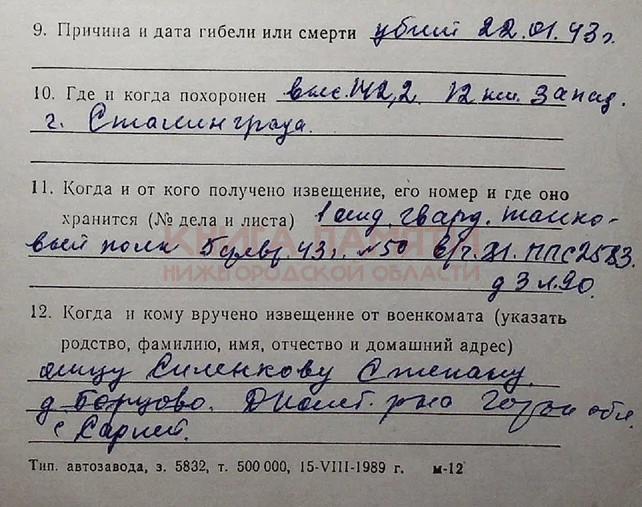 9. Причина и дата гибели или смерти убит 22.01.43 г.
10. Где и когда похоронен выс. 142,2 12 км. запад.
г. Сталинграда.
11. Когда и от кого получено извещение, его номер и где оно
хранится (№ дела и листа) 1 отд. гвард. танко-
вый полк 5 февр. 43 г. №50 в/ч. ППС 2583.
д 3 л. 90.
КНИГА ПАМЯТИ
НИЖЕГОРОДСКОЙ ОБЛАСТИ
12. Когда и кому вручено извещение от военкомата (указать
родство, фамилию, имя, отчество и домашний адрес)
отцу Силенкову Степану
д Борцово. р-на Горьк обл.
с Сарлей.
Тип. автозавода, з. 5832, т. 500 000, 15-VIII-1989 г. м-12